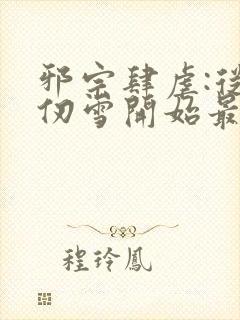 邪宗肆虐:從
仞雪開始最
程玲鳳